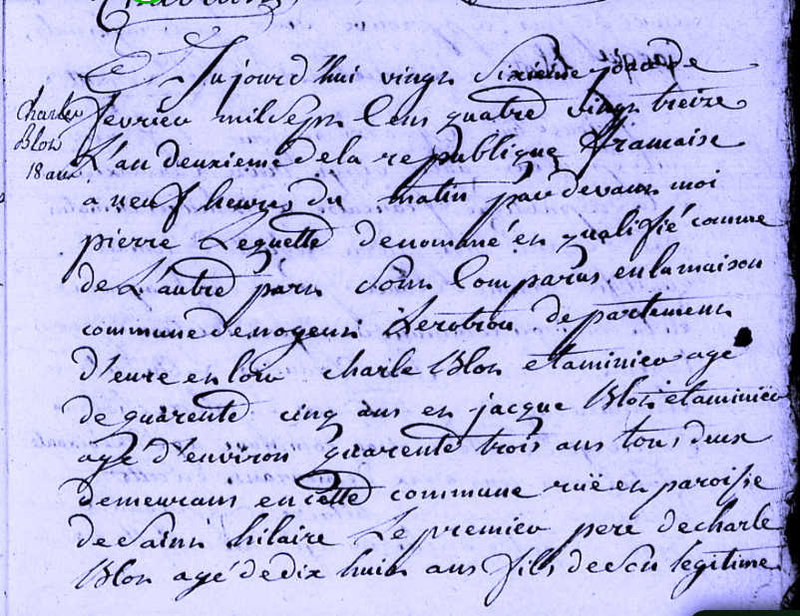 Charles
Blon
18 ans
Aujourd'hui vingt sixieme jour de
fevrier mil sept Cens quatre vingt treize
L'an deuxieme de la republique francaise
a neuf heures du matin pardevant moi
pierre Leguette denommé et qualifié comme
de L'autre part Sont Comparus en la maison
commune de nogent Lerotrou departement
d'eure et loir charle Blon etaminier agé
de quarente cinq ans et jacque Blon etaminier
agé d'environ quarente trois ans tous deux
demeurans en cette commune ruë et paroisse
de Saint hilaire Le premier pere de charle
Blon agé de dix huit ans fils de son legitime